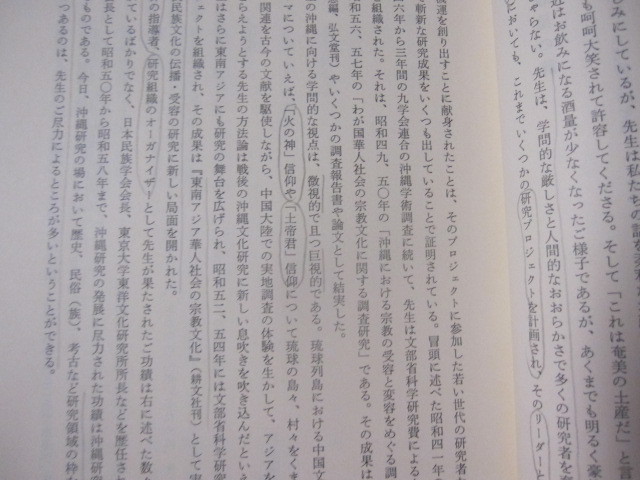 しみにしているが、先生は私たちの
も呵呵大笑されて許容してくださる。そして「これは奄美の土産だ」と言
近はお飲みになる酒量が少なくなったご様子であるが、あくまでも明るく豪
しゃらない。先生は、学問的な厳しさと人間的なおおらかさで多くの研究者を
においても、これまでいくつかの研究プロジェクトを計画され、そのリーダーと
機運を創り出すことに献身されたことは、そのプロジェクトに参加した若い世代の研究者
斬新な研究成果をいくつも出していることで証明されている。冒頭に述べた昭和四一年の
六年から三年間の九学会連合の沖縄学術調査に続いて、先生は文部省科学研究費による
組織された。それは、昭和四九、五〇年の「沖縄における宗教の受容と変容をめぐる調
和五五、五六、五七年の「わが国華人社会の宗教文化に関する調査研究」である。その成果は
編、弘文堂刊）やいくつかの調査報告書や論文として結実した。
の沖縄に向ける学問的な視点は、微視的で且つ巨視的である。琉球列島における中国文
マについていえば、「火の神」信仰や「土帝君」信仰について琉球の島々、村々をくま
関連を古今の文献を駆使しながら、中国大陸での実地調査の体験を生かして、アジアを
らえようとする先生の方法論は戦後の沖縄文化研究に新しい息吹を吹き込んだといえ
はさらに東南アジアにも研究の舞台を広げられ、昭和五二、五四年には文部省科学研究
ジェクトを組織され、その成果は『東南アジア華人社会の宗教文化』（耕文社刊）として実
民族文化の伝播・受容の研究に新しい局面を開かれた。
の指導者、研究組織のオーガナイザーとして先生が果たされたご功績は右に述べた数
ているばかりでなく、日本民族学会会長、東京大学東洋文化研究所所長などを歴任され
長として昭和五〇年から昭和五八年まで、沖縄研究の発展に尽力された功績は沖縄研究
ものである。今日、沖縄研究の場において歴史、民俗（族）、考古など研究領域の枠を
つあるのは、先生のご尽力によるところが多いということができる。